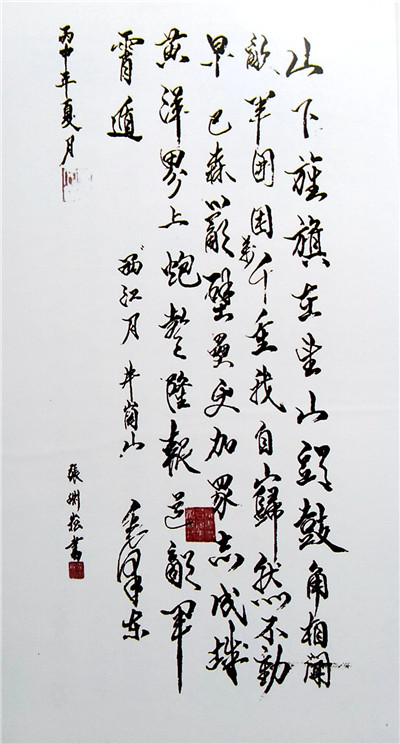 山下旌旗在望山頭鼓角相聞
敵軍圍困萬千重我自巋然不動
早已森嚴壁壘更加眾志成城
黃洋界上炮聲隆報道敵軍
霄遁
"西江月 井崗山 毛澤東
丙申年夏月
張 書